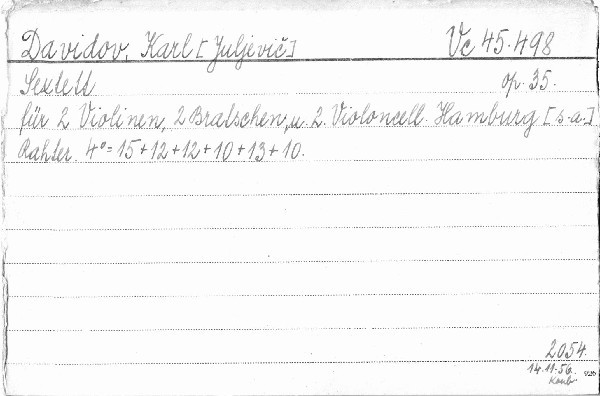 Davidov, Karl [Juljevič] Vc 45.498
Sextett op. 35.
für 2 Violinen, 2 Bratschen, u. 2. Violoncell. Hamburg [s.a.]
Rahter. 4°= 15+12+12+10+13+10.
2054.
14.11.56.